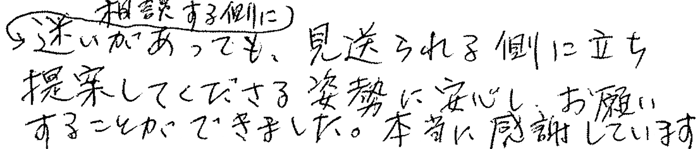 相談する側に
迷いがあっても、見送られる側に立ち
提案してくださる姿勢に安心し、お願い
することができました。本当に感謝しています